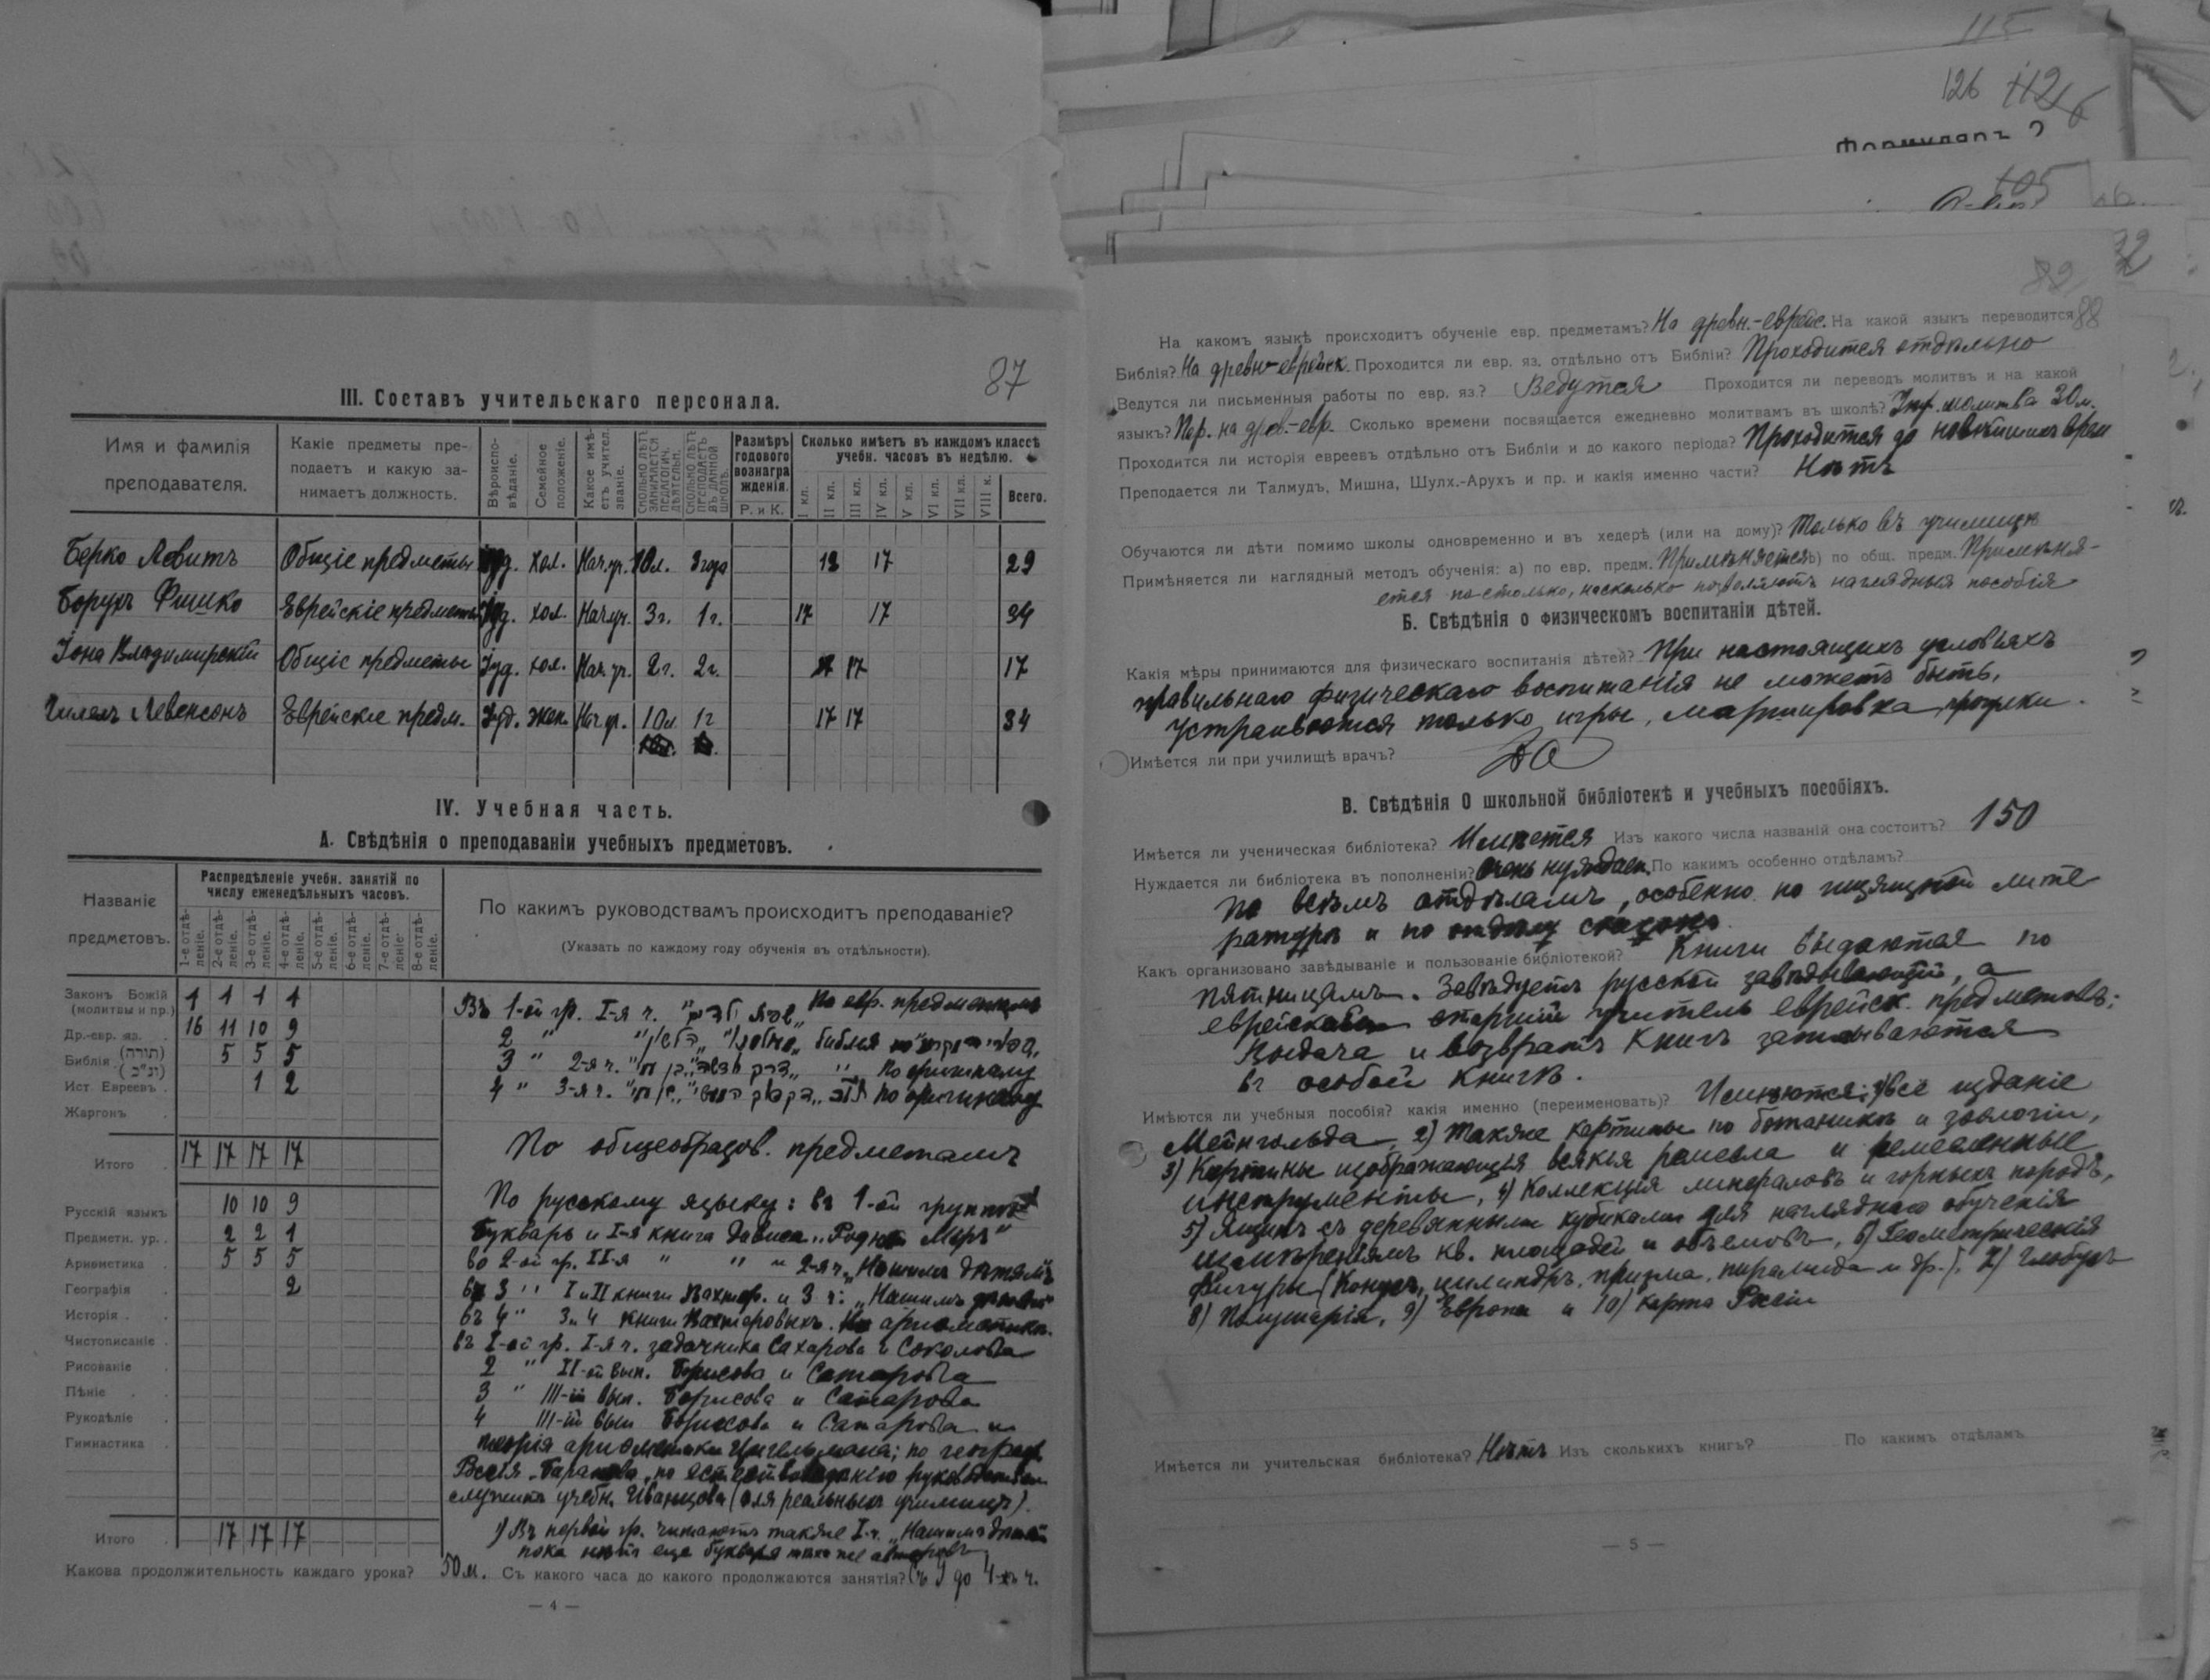 115
126 112
Формуляръ 2
105
87
III. Составъ учительскаго персонала.
Имя и фамилія преподавателя.
Какіе предметы преподаетъ и какую занимаетъ должность.
Вѣроисповѣданіе.
Семейное положеніе.
Какое имѣетъ учител. званіе.
Сколько лѣтъ занимается педагогич. дѣятельн.
Сколько лѣтъ преподаетъ въ данной школѣ.
Размѣръ годового вознагражденія. Р. и К.
Сколько имѣетъ въ каждомъ классѣ учебн. часовъ въ недѣлю.
I кл. II кл. III кл. IV кл. V кл. VI кл. VII кл. VIII к. Всего.
Берко Левитъ Общіе предметы Іуд. хол. Нач. уч. 10 л. 3 года 12 17 29
Борухъ Фишко Еврейскіе предметы Іуд. хол. Нач. уч. 3 г. 1 г. 17 17 34
Іона Владимирскій Общіе предметы Іуд. хол. Нач. уч. 2 г. 2 г. 17 17
Гилелъ Левенсонъ Еврейскіе предм. Іуд. жен. Нач. уч. 10 л. 1 г 17 17 34
IV. Учебная часть.
А. Свѣдѣнія о преподаваніи учебныхъ предметовъ.
Названіе предметовъ.
Распредѣленіе учебн. занятій по числу еженедѣльныхъ часовъ.
1-е отдѣленіе. 2-е отдѣленіе. 3-е отдѣленіе. 4-е отдѣленіе. 5-е отдѣленіе. 6-е отдѣленіе. 7-е отдѣленіе. 8-е отдѣленіе.
По какимъ руководствамъ происходитъ преподаваніе?
(Указать по каждому году обученія въ отдѣльности).
Законъ Божій (молитвы и пр.) 1 1 1 1
Др.-евр. яз. 16 11 10 9
Библія (תורה) (נ"ך) 5 5 5
Ист. Евреевъ 1 2
Жаргонъ
Итого 17 17 17 17
Русскій языкъ 10 10 9
Предметн. ур. 2 2 1
Ариѳмстика 5 5 5
Географія 2
Исторія
Чистописаніе
Рисованіе
Пѣніе
Рукодѣліе
Гимнастика
Итого 17 17 17
Въ 1-ой гр. I-я ч. По евр. предметамъ
2 " библия
3 " 2-я ч. По оригиналу
4 " 3-я ч. по оригиналу
По общеобразов. предметамъ
По русскому языку: въ 1-ой группѣ
Букварь и I-я книга "Родной Міръ"
во 2-ой гр. II-я " " и 2-я ч. "Нашимъ дѣтямъ"
въ 3 " I и II книги Вахтер. и 3 ч: "Нашимъ
въ 4 " 3 и 4 книги Вахтеровыхъ. По ариѳметикѣ.
въ I-ой гр. I-я ч. задачника Сахарова и Соколова
2 " II-ой вып. Борисова и Сатарова
3 " III-й вып. Борисова и Сатарова
4 III-й вып Борисова и Сатарова и
теорія ариѳметики
служитъ учебн. Иванцова (для реальныхъ училищъ).
1) Въ первой гр. читаютъ также I-ч. "Нашимъ
пока нѣтъ еще букваря
Какова продолжительность каждаго урока? 50 м. Съ какого часа до какого продолжаются занятія? Съ 9 до 4-хъ ч.
— 4 —
32
88
На какомъ языкѣ происходитъ обученіе евр. предметамъ? На древн.-еврейс. На какой языкъ переводится
Библія? На древн-еврейск. Проходится ли евр. яз. отдѣльно отъ Библіи? Проходится отдѣльно
Ведутся ли письменныя работы по евр. яз.? Ведутся Проходится ли переводъ молитвъ и на какой
языкъ? Пер. на древ.-евр. Сколько времени посвящается ежедневно молитвамъ въ школѣ? молитва 20 м.
Проходится ли исторія евреевъ отдѣльно отъ Библіи и до какого періода? Проходится до новѣйшихъ врем
Преподается ли Талмудъ, Мишна, Шулх.-Арухъ и пр. и какія именно части? Нѣтъ
Обучаются ли дѣти помимо школы одновременно и въ хедерѣ (или на дому)? Только въ училищѣ
Примѣняется ли наглядный методъ обученія: а) по евр. предм. Примѣняется б) по общ. предм. Примѣня-
ется по-столько, насколько позволяютъ наглядныя пособія
Б. Свѣдѣнія о физическомъ воспитаніи дѣтей.
Какія мѣры принимаются для физическаго воспитанія дѣтей? При настоящихъ условіяхъ
правильнаго физическаго воспитанія не можетъ быть.
Устраиваются только игры, маршировка, прогулки.
Имѣется ли при училищѣ врачъ? Да
В. Свѣдѣнія о школьной библіотекѣ и учебныхъ пособіяхъ.
Имѣется ли ученическая библіотека? Имѣется Изъ какого числа названій она состоитъ? 150
Нуждается ли библіотека въ пополненіи? Очень нуждает. По какимъ особенно отдѣламъ?
по всѣмъ отдѣламъ, особенно по изящной лите
ратурѣ и по отдѣлу сказокъ
Какъ организовано завѣдываніе и пользованіе библіотекой? Книги выдаются по
пятницамъ. Завѣдуетъ русской завѣдывающій, а
еврейской старшій учитель еврейск. предметовъ;
Выдача и возвратъ книгъ записываются
въ особой книгѣ.
Имѣются ли учебныя пособія? какія именно (переименовать)? Имѣются: 1) всѣ изданіе
Мейнгольда, 2) Также картины по ботаникѣ и зоологіи,
3) Картины изображающія всякія ремесла и ремесленные
инструменты, 4) Коллекція минераловъ и горныхъ породъ,
5) Ящикъ съ деревянными кубиками для нагляднаго обученія
измѣреніямъ кв. площадей и объемовъ, 6) Геометрическія
фигуры (Конусъ, цилиндръ, призма, пирамида и др.), 7) Глобусъ
8) Полушарія, 9) Европа и 10) карта Россіи
Имѣется ли учительская библіотека? Нѣтъ Изъ сколькихъ книгъ? По какимъ отдѣламъ
— 5 —